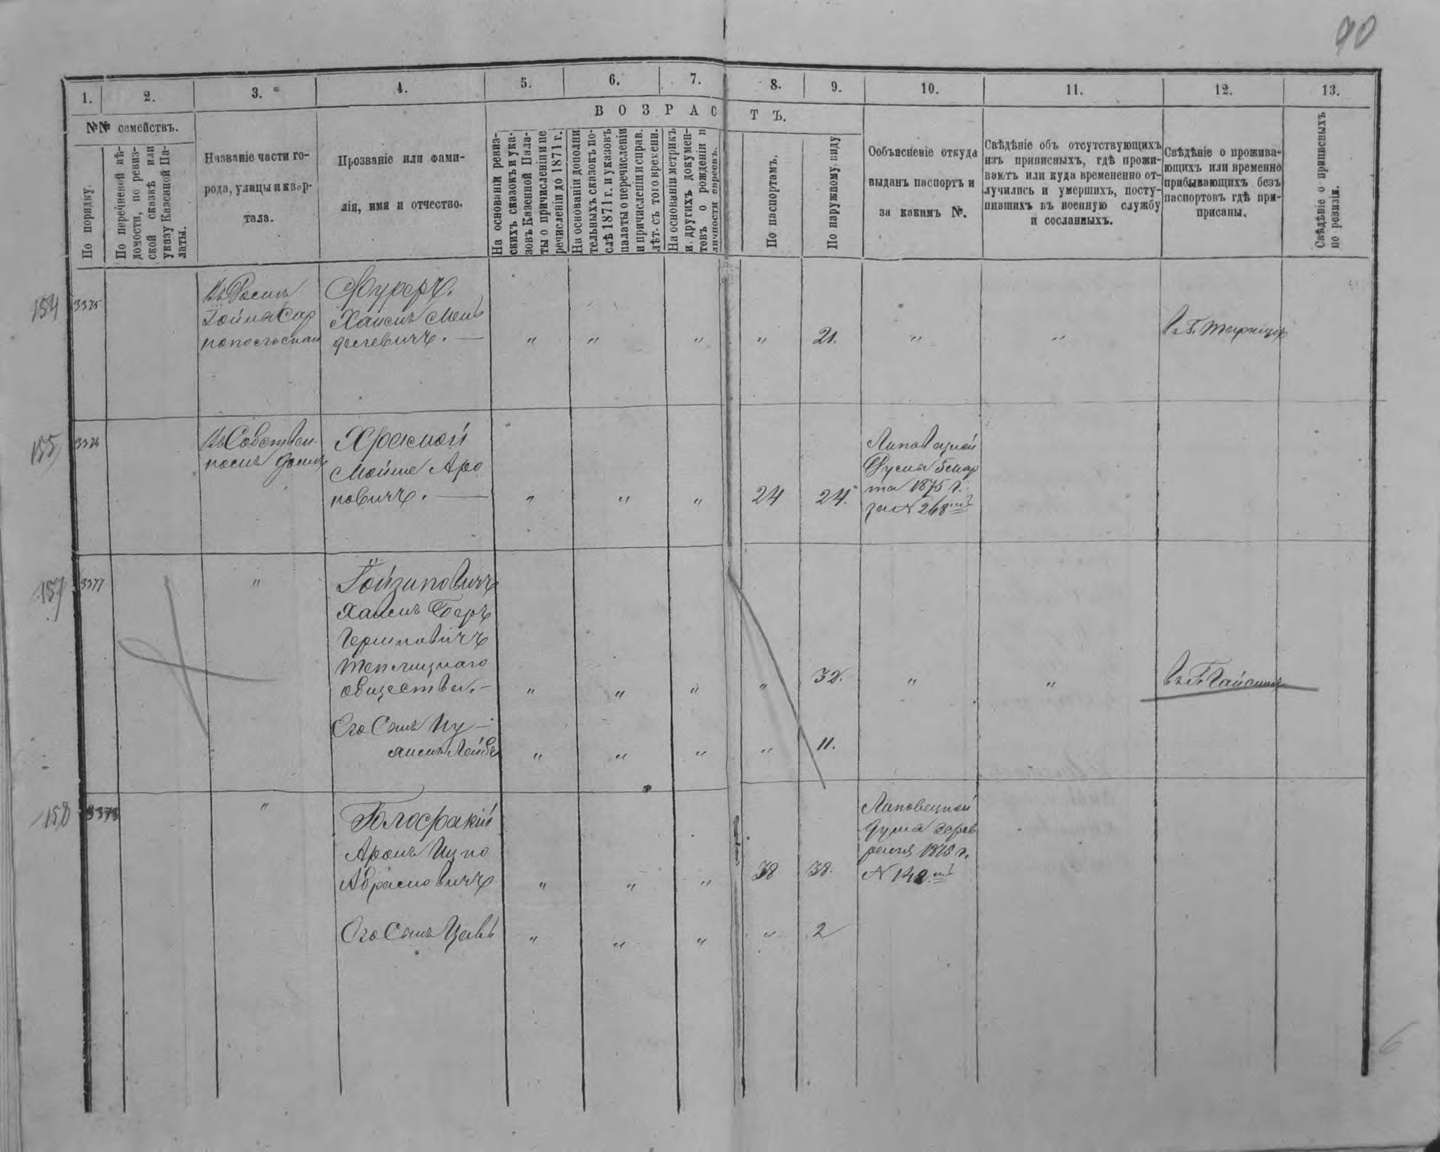 90
1. 2. 3. 4. 5. 6. 7. 8. 9. 10. 11. 12. 13.
№№ семействъ.
По порядку.
По перечневой вѣдомости, по ревизской сказкѣ или указу Казенной Палаты.
Названіе части города, улицы и квартала.
Прозваніе или фамилія, имя и отчество.
ВОЗРАСТЪ.
На основаніи ревизскихъ сказокъ и указовъ Казенной Палаты о причисленіи и перечисленіи до 1871 г.
На основаніи дополнительныхъ сказокъ послѣ 1871 г. и указовъ палаты о перечисленіи и причисленіи и справ. лѣт. съ того времени.
На основаніи метрикъ и другихъ документовъ о рожденіи и личности евреевъ.
По паспортамъ.
По наружному виду
Объясненіе откуда
выданъ паспортъ и
за какимъ №.
Свѣдѣніе объ отсутствующихъ
изъ приписныхъ, гдѣ проживаютъ или куда временно отлучились и умершихъ, поступившихъ въ военную службу
и сосланныхъ.
Свѣдѣніе о проживающихъ или временно
прибывающихъ безъ
паспортовъ гдѣ приписаны.
Свѣдѣніе о приписныхъ по ревизіи.
154
3375
Въ Домѣ
Фуреръ.
Хаимъ Мен
делевичъ. —
" " " " 21. " "
155
3376
Въ Собствен
номъ Домѣ
Мойше Аро
новичъ. —
" " " 24 24.
Липовецкой
Думы 5 мар
та 1875 г.
за № 268
157
3377
"
Хаимъ Беръ
Гершковичъ
Теплицкаго
общества. —
" " " " 32. " "
Въ Г. Гайсинѣ
Его Сынъ
Лейбъ
" " " " 11.
158
3378
"
Аронъ Ицко
Абрамовичъ
" " " 38 38.
Липовецкой
Дума
1875 г.
№ 142
Его Сынъ
" " " " 2
6